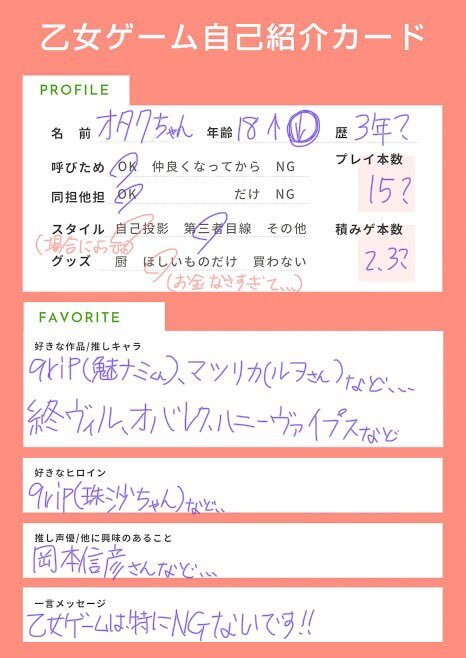 乙女ゲーム自己紹介カード
PROFILE
名 前 オタクちゃん 年齢 18↑ ↓ 歴 3年?
呼びため OK 仲良くなってから NG プレイ本数
同担他担 OK だけ NG 15?
スタイル 自己投影 第三者目線 その他 積みゲ本数
(場合による)
グッズ 厨 ほしいものだけ 買わない 2.3?
(お金なさすぎて、、、)
FAVORITE
好きな作品/推しキャラ
9RIP(魅ナミくん)、マツリカ(ルヲさん)など、、、
終ヴィル、オバレク、ハニーヴァイブスなど
好きなヒロイン
9RIP(珠沙ちゃん)など、、
推し声優/他に興味のあること
岡本信彦さんなど、、、
一言メッセージ
乙女ゲームは特にNGないです!!